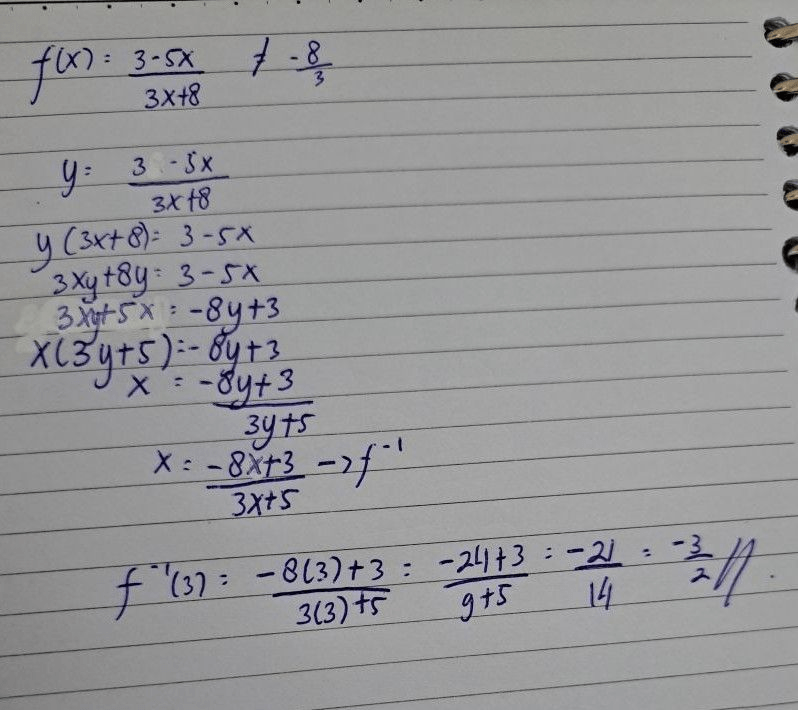 f(x) = 3-5x / 3x+8 ≠ -8/3
y = 3 - 5x / 3x+8
y (3x+8) = 3 - 5x
3xy+8y = 3 - 5x
3xy+5x = -8y+3
x(3y+5) = -8y+3
x = -8y+3 / 3y+5
x = -8x+3 / 3x+5 -> f⁻¹
f⁻¹(3) = -8(3)+3 / 3(3)+5 = -24+3 / 9+5 = -21 / 14 = -3 / 2 //.